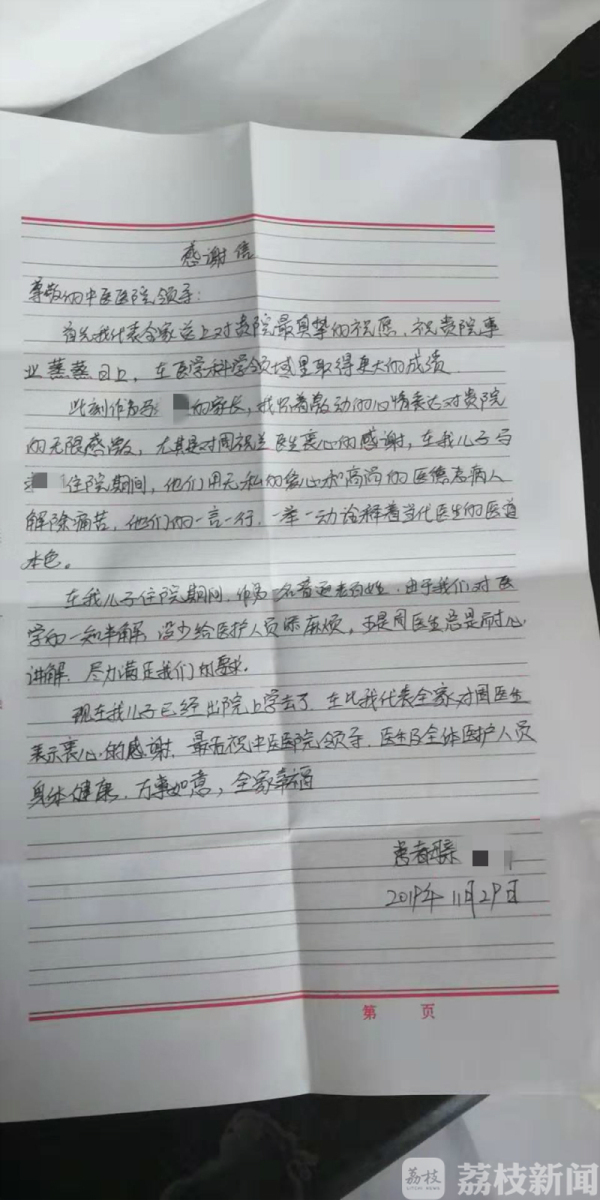 感谢信
尊敬的中医医院领导：
首先我代表全家送上对贵院最真挚的祝愿，祝贵院事
业蒸蒸日上，在医学科学领域里取得更大的成绩
此刻作为 的家长，我怀着激动的心情表达对贵院
的无限感激，尤其是对周祝兰医生衷心的感谢，在我儿子
住院期间，他们用无私的爱心和高尚的医德为病人
解除痛苦，他们的一言一行，一举一动诠释着当代医生的医道
本色。
在我儿子住院期间，作为一名普通老百姓，由于我们对医
学的一知半解，没少给医护人员添麻烦，可是周医生总是耐心
讲解，尽力满足我们的要求。
现在我儿子已经出院上学去了，在此我代表全家对周医生
表示衷心的感谢，最后祝中医医院领导，医生及全体医护人员
身体健康，万事如意，全家幸福
患者
2019年11月29日
第 页
荔枝
荔枝新闻